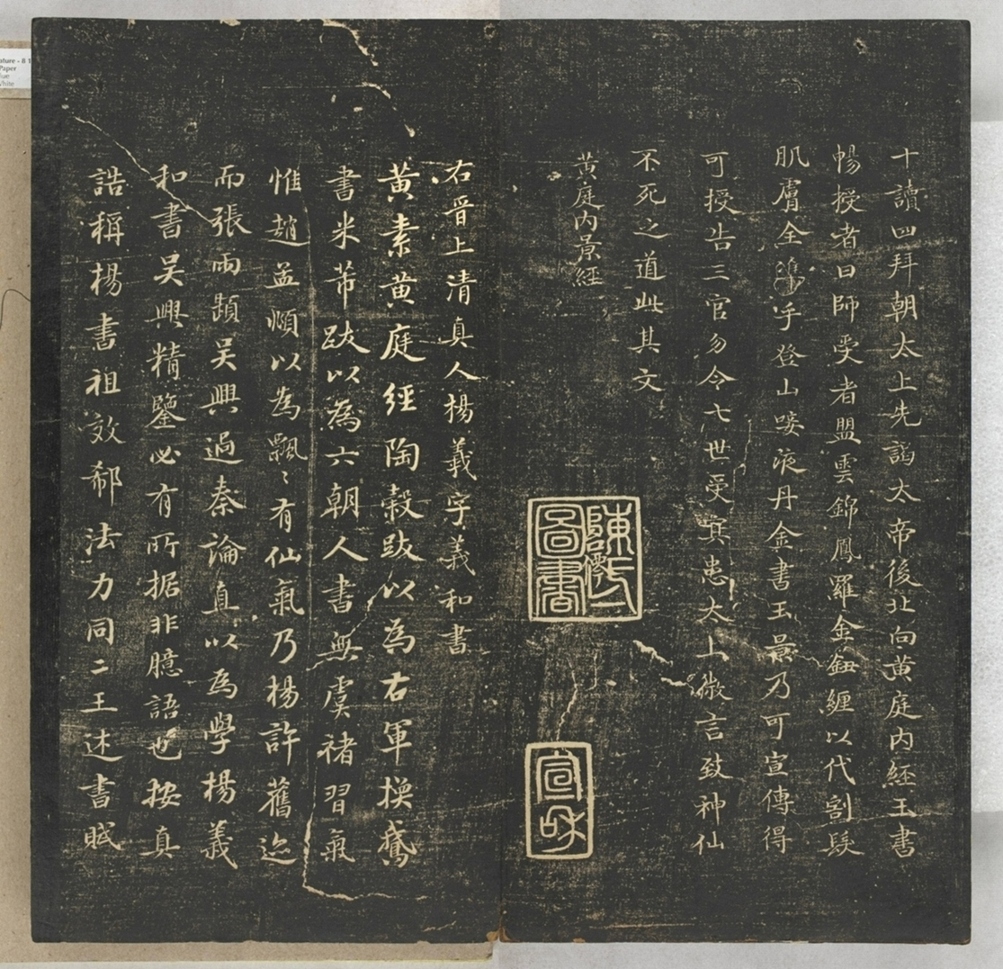 十讀四拜朝太上先謁太帝後北向黃庭內經玉書
暢授者曰師受者盟雲錦鳳羅金鈕纏以代割髮
肌膚全攜手登山歃液丹金書玉景乃可宣傳得
可授告三官勿令七世受冥患太上微言致神仙
不死之道此其文
黃庭內景經
陳氵
圖書
宣和
右晉上清真人楊義字義和書
黃素黃庭經陶榖跋以為右軍換鵞
書米芾跋以為六朝人書無虞褚習氣
惟趙孟頫以為飄〻有仙氣乃楊許舊迹
而張雨題吳興過秦論直以為學楊義
和書吳興精鑒必有所据非臆語也按真
誥稱楊書祖效郗法力同二王述書賦